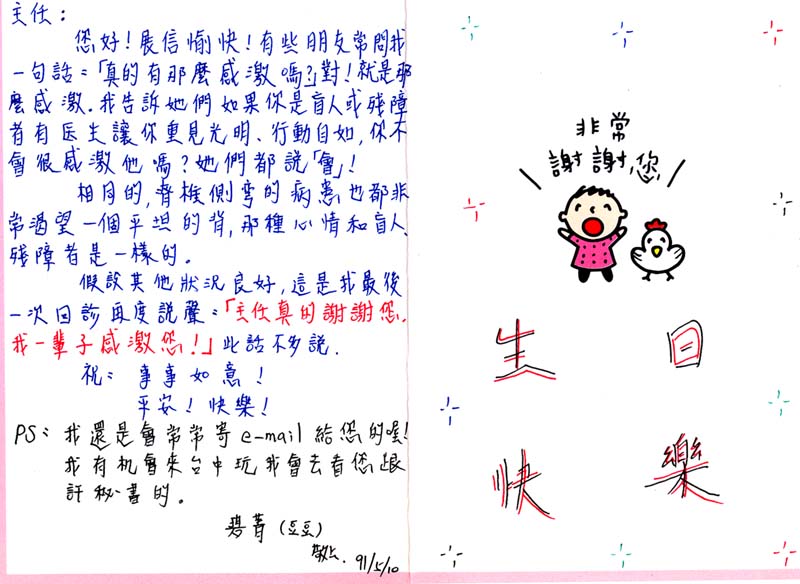 主任：
您好！展信愉快！有些朋友常問我
一句話：「真的有那麼感激嗎？」對！就是那
麼感激。我告訴她們如果你是盲人或殘障
者有医生讓你重見光明、行動自如，你不
會很感激他嗎？她們都說「會」！
相同的，脊椎側彎的病患也都非
常渴望一個平坦的背，那種心情和盲人、
殘障者是一樣的。
假設其他狀況良好，這是我最後
一次回診再度說聲：「主任真的謝謝您，
我一輩子感激您！」此話不多說．
祝：事事如意！
平安！快樂！
PS：我還是會常常寄e-mail給您的喔！
我有机會來台中玩我會去看您跟
許秘書的。
菁（豆豆）
敬上．91/5/10
非常
謝謝您
生日
快樂